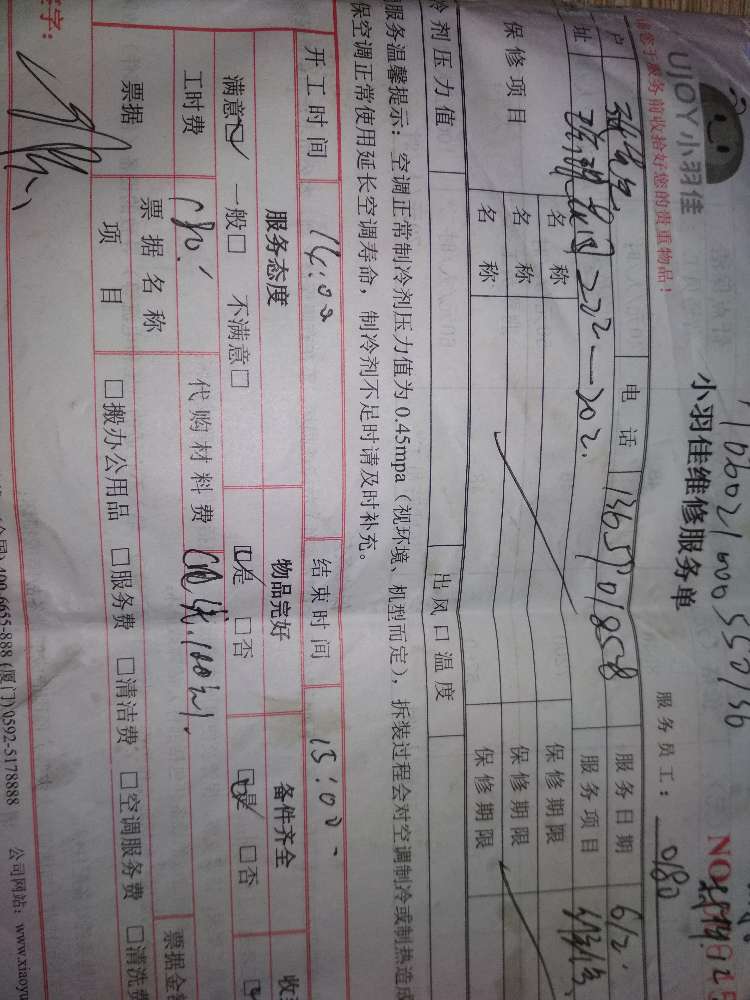 UJOY小羽佳
请您于服务前收拾好您的贵重物品！
小羽佳维修服务单
服务员工： 0180
NO
户
电话 13659018558
服务日期 6/2
址 222—202.
服务项目
保修项目
名称
保修期限
名称
保修期限
名称
保修期限
冷剂压力值
出风口温度
服务温馨提示：空调正常制冷剂压力值为0.45mpa（视环境、机型而定），拆装过程会对空调制冷或制热造成
保空调正常使用延长空调寿命，制冷剂不足时请及时补充。
开工时间 14:00
结束时间 15:00
服务态度
物品完好
备件齐全
收
满意☑ 一般□ 不满意□
☑是 □否
☑是 □否
工时费 180.
代购材料费
票据
票据名称
票据金
项目
□搬办公用品 □服务费 □清洁费 □空调服务费 □清洗费
字：
(全国) 400-6655-888 (厦门) 0592-5178888 公司网站：www.xiaoyu